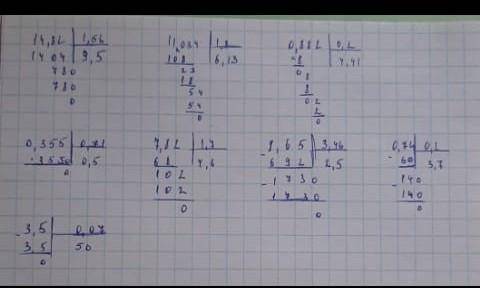 14,82 1,56
1404 9,5
780
780
0
11,034 1,8
108 6,13
23
18
54
54
0
0,882 0,2
8 4,41
08
8
02
2
0
0,355 0,71
3550 0,5
0
7,82 1,7
68 4,6
102
102
0
- 8,65 3,46
692 2,5
- 1730
1730
0
- 0,74 0,2
60 3,7
- 140
140
0
- 3,5 0,07
3,5 50
0